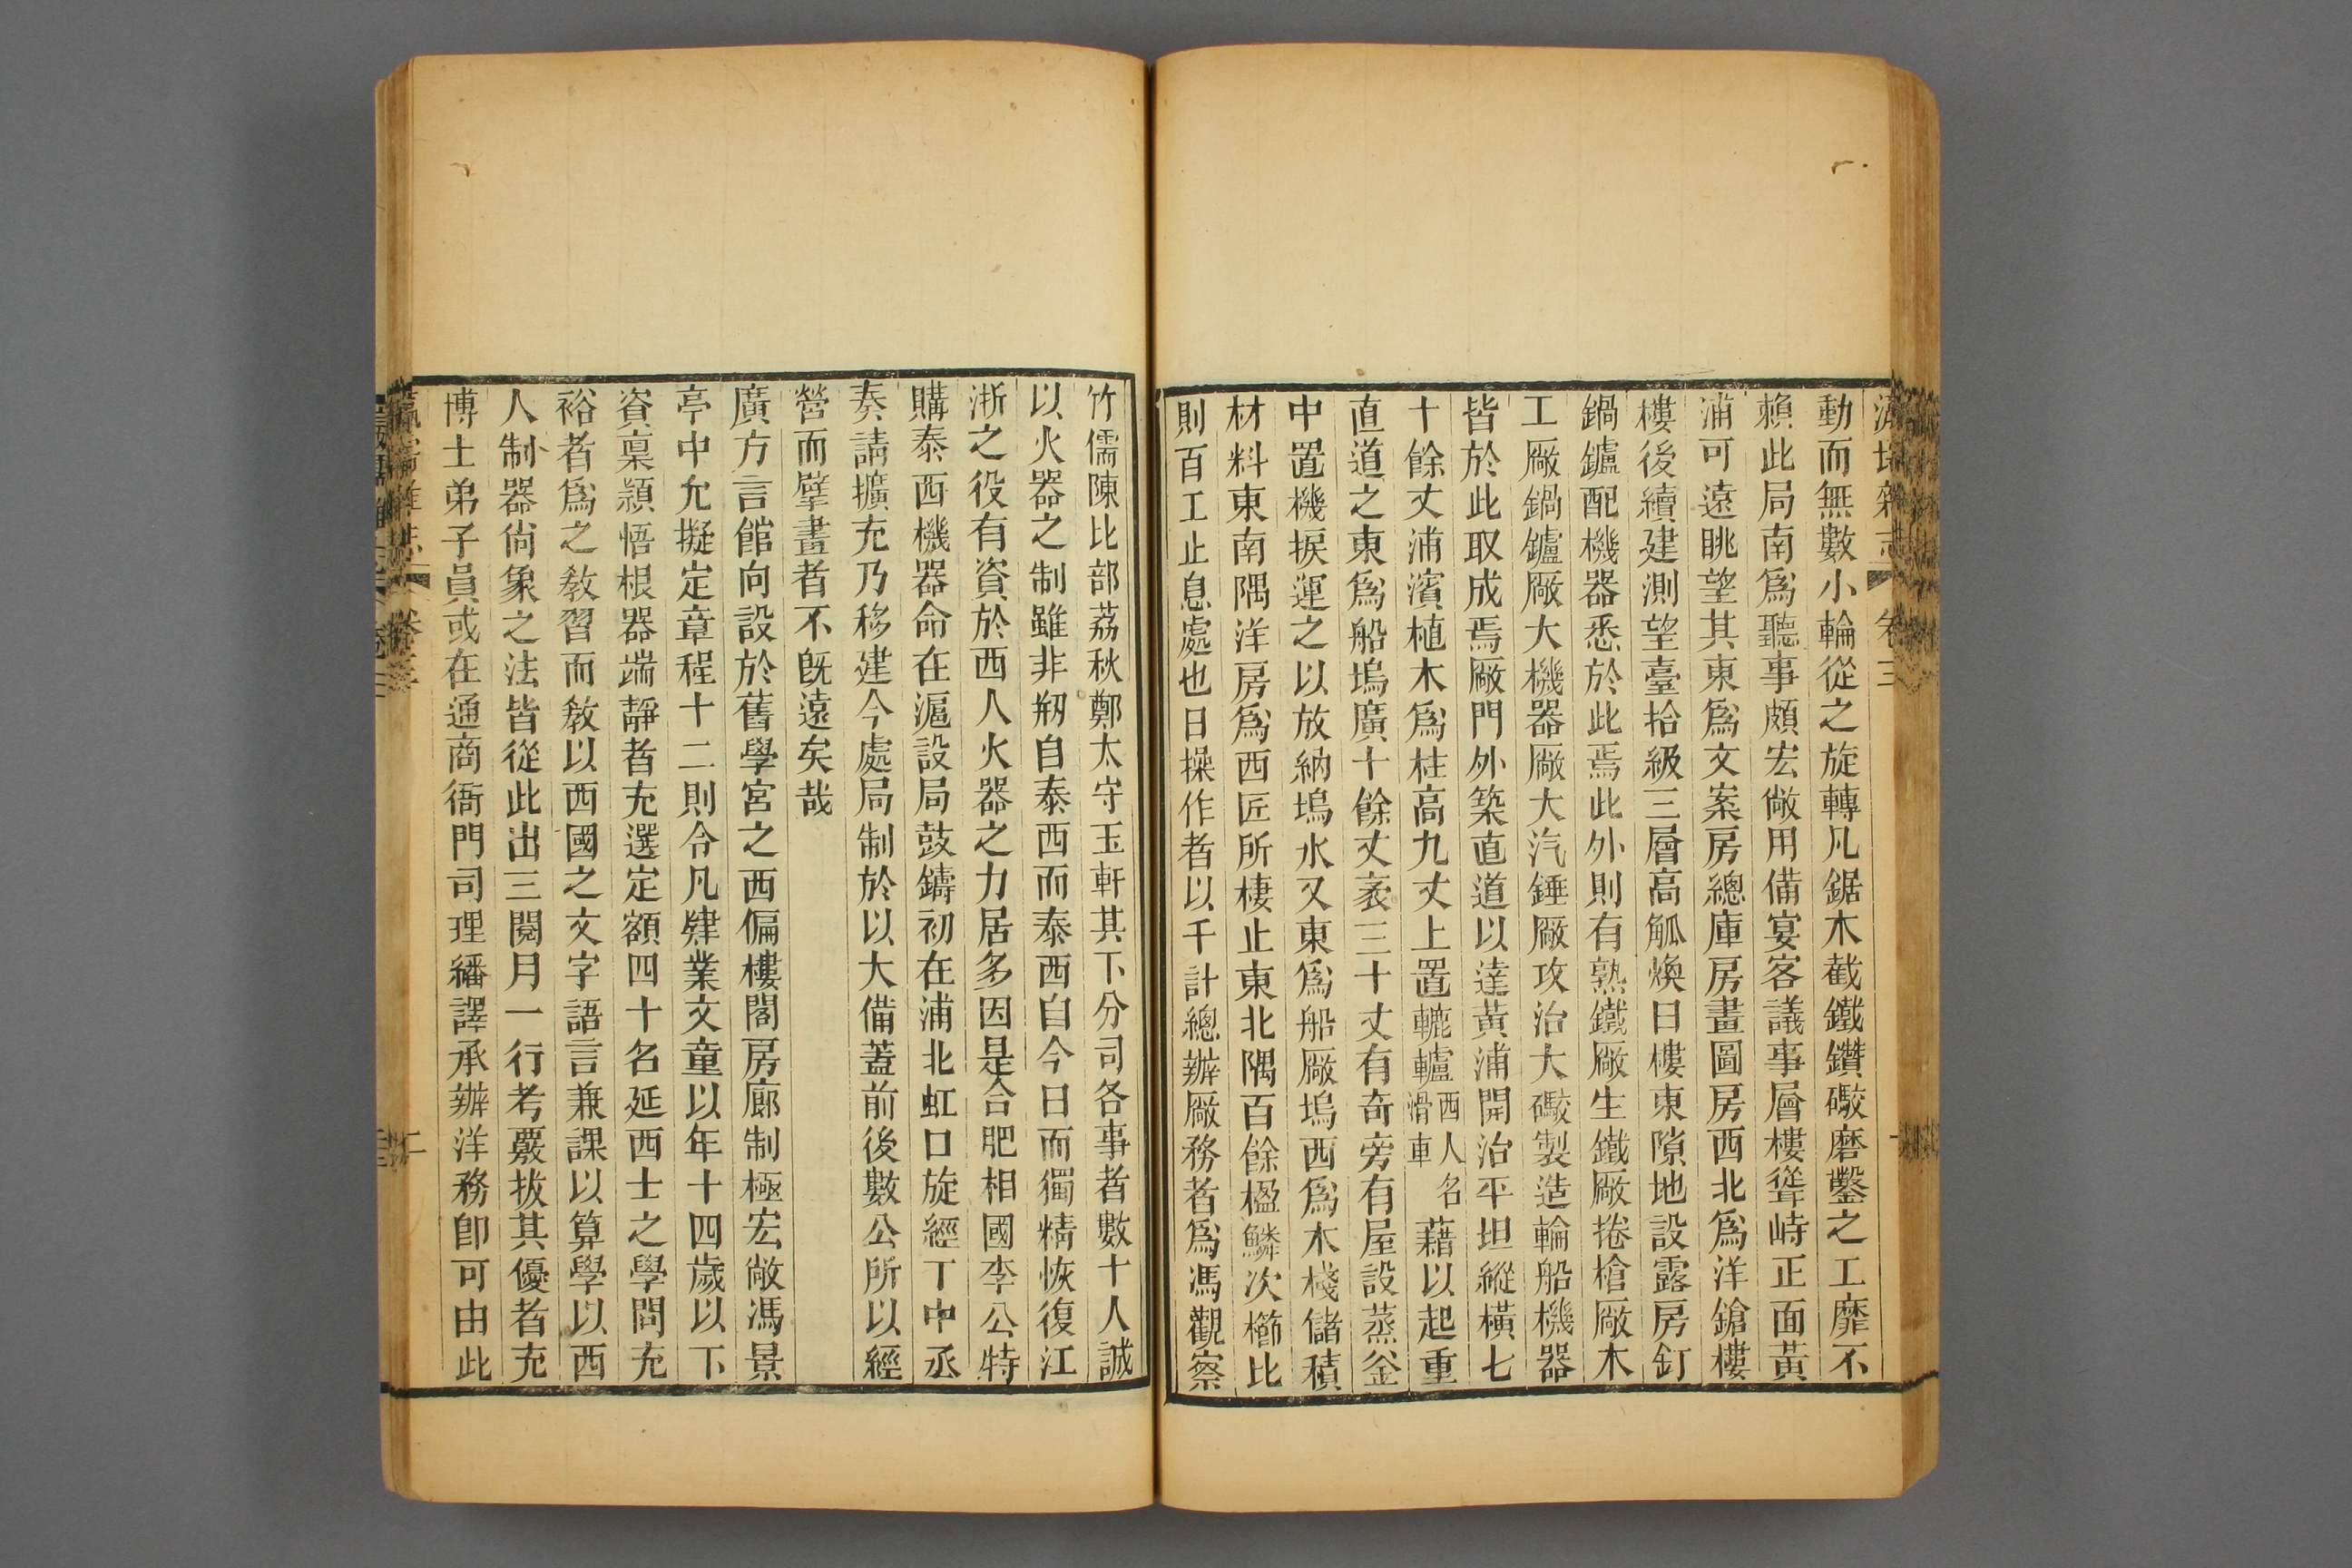 瀛壖雜志 卷三
動而無數小輪從之旋轉凡鋸木截鐵鑽礮磨鑿之工靡不
賴此局南爲聽事頗宏敞用備宴客議事層樓聳峙正面黃
浦可遠眺望其東爲文案房總庫房畫圖房西北爲洋鎗樓
樓後續建測望臺拾級三層高觚煥日樓東隙地設露房釘
鍋鑪配機器悉於此焉此外則有熟鐵厰生鐵厰捲槍厰木
工厰鍋鑪厰大機器厰大汽錘厰攻治大礮製造輪船機器
皆於此取成焉厰門外築直道以達黃浦開治平坦縱橫七
十餘丈浦濱植木爲柱高九丈上置轆轤西人名滑車藉以起重
直道之東爲船塢廣十餘丈袤三十丈有奇旁有屋設蒸釡
中置機捩運之以放納塢水又東爲船厰塢西爲木棧儲積
材料東南隅洋房爲西匠所棲止東北隅百餘楹鱗次櫛比
則百工止息處也日操作者以千計總辦厰務者爲馮觀察
竹儒陳比部荔秋鄭太守玉軒其下分司各事者數十人誠
以火器之制雖非剏自泰西而泰西自今日而獨精恢復江
浙之役有資於西人火器之力居多因是合肥相國李公特
購泰西機器命在滬設局鼓鑄初在浦北虹口旋經丁中丞
奏請擴充乃移建今處局制於以大備蓋前後數公所以經
營而擘畫者不既遠矣哉
廣方言館向設於舊學宮之西偏樓閣房廊制極宏敞馮景
亭中允擬定章程十二則令凡肄業文童以年十四歲以下
資稟穎悟根器端靜者充選定額四十名延西士之學問充
裕者爲之敎習而敎以西國之文字語言兼課以算學以西
人制器尙象之法皆從此出三閱月一行考覈拔其優者充
博士弟子員或在通商衙門司理繙譯承辦洋務卽可由此
瀛壖雜志 卷三 二